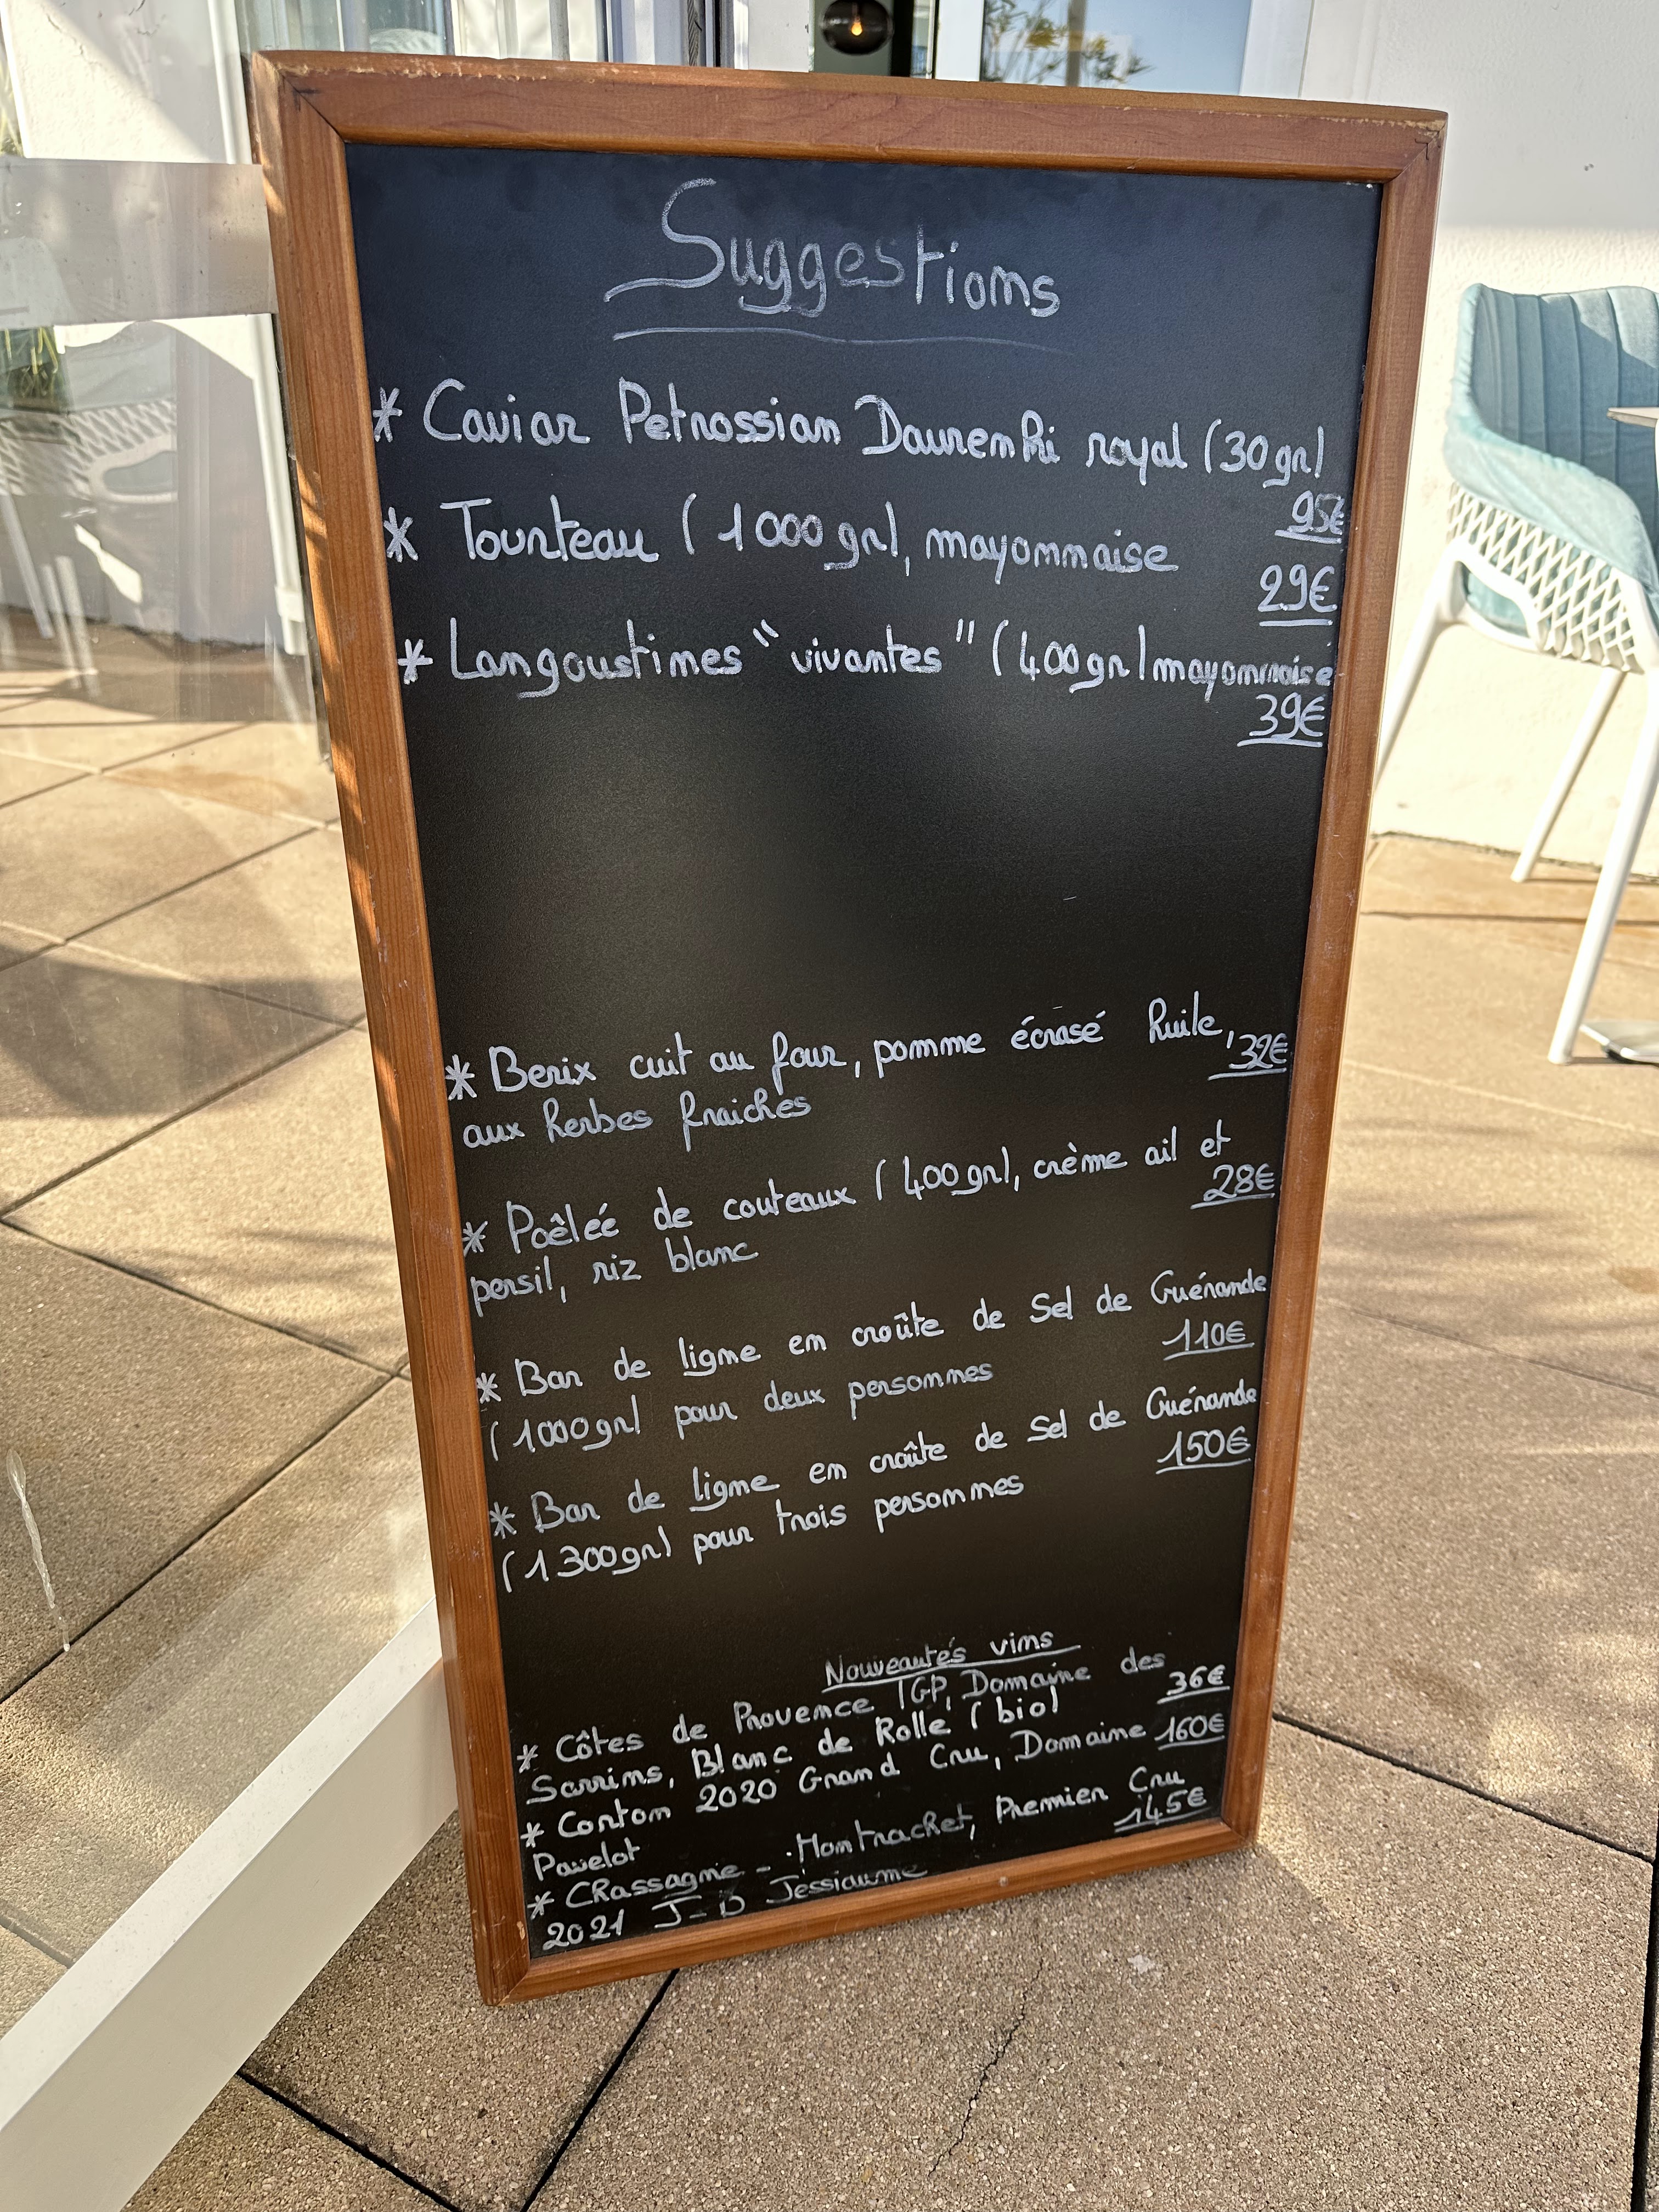 Suggestions
* Caviar Petrossian Daurenki royal (30gr)
95€
* Tourteau (1000gr), mayonnaise
29€
* Langoustines "vivantes" (400gr) mayonnaise
39€
* Berix cuit au four, pomme écrasé huile,
32€
aux herbes fraiches
* Poêleé de couteaux (400gr), crème ail et
28€
persil, riz blanc
* Bar de ligne en croûte de Sel de Guérande
110€
(1000gr) pour deux personnes
* Bar de ligne en croûte de Sel de Guérande
150€
(1300gr) pour trois personnes
Nouveautés vins
* Côtes de Provence IGP, Domaine des
36€
Sarrins, Blanc de Rolle (bio)
* Corton 2020 Grand Cru, Domaine 160€
Pavelot
* Chassagne - Montrachet, Premier Cru
145€
2021 J-D Jessiaume